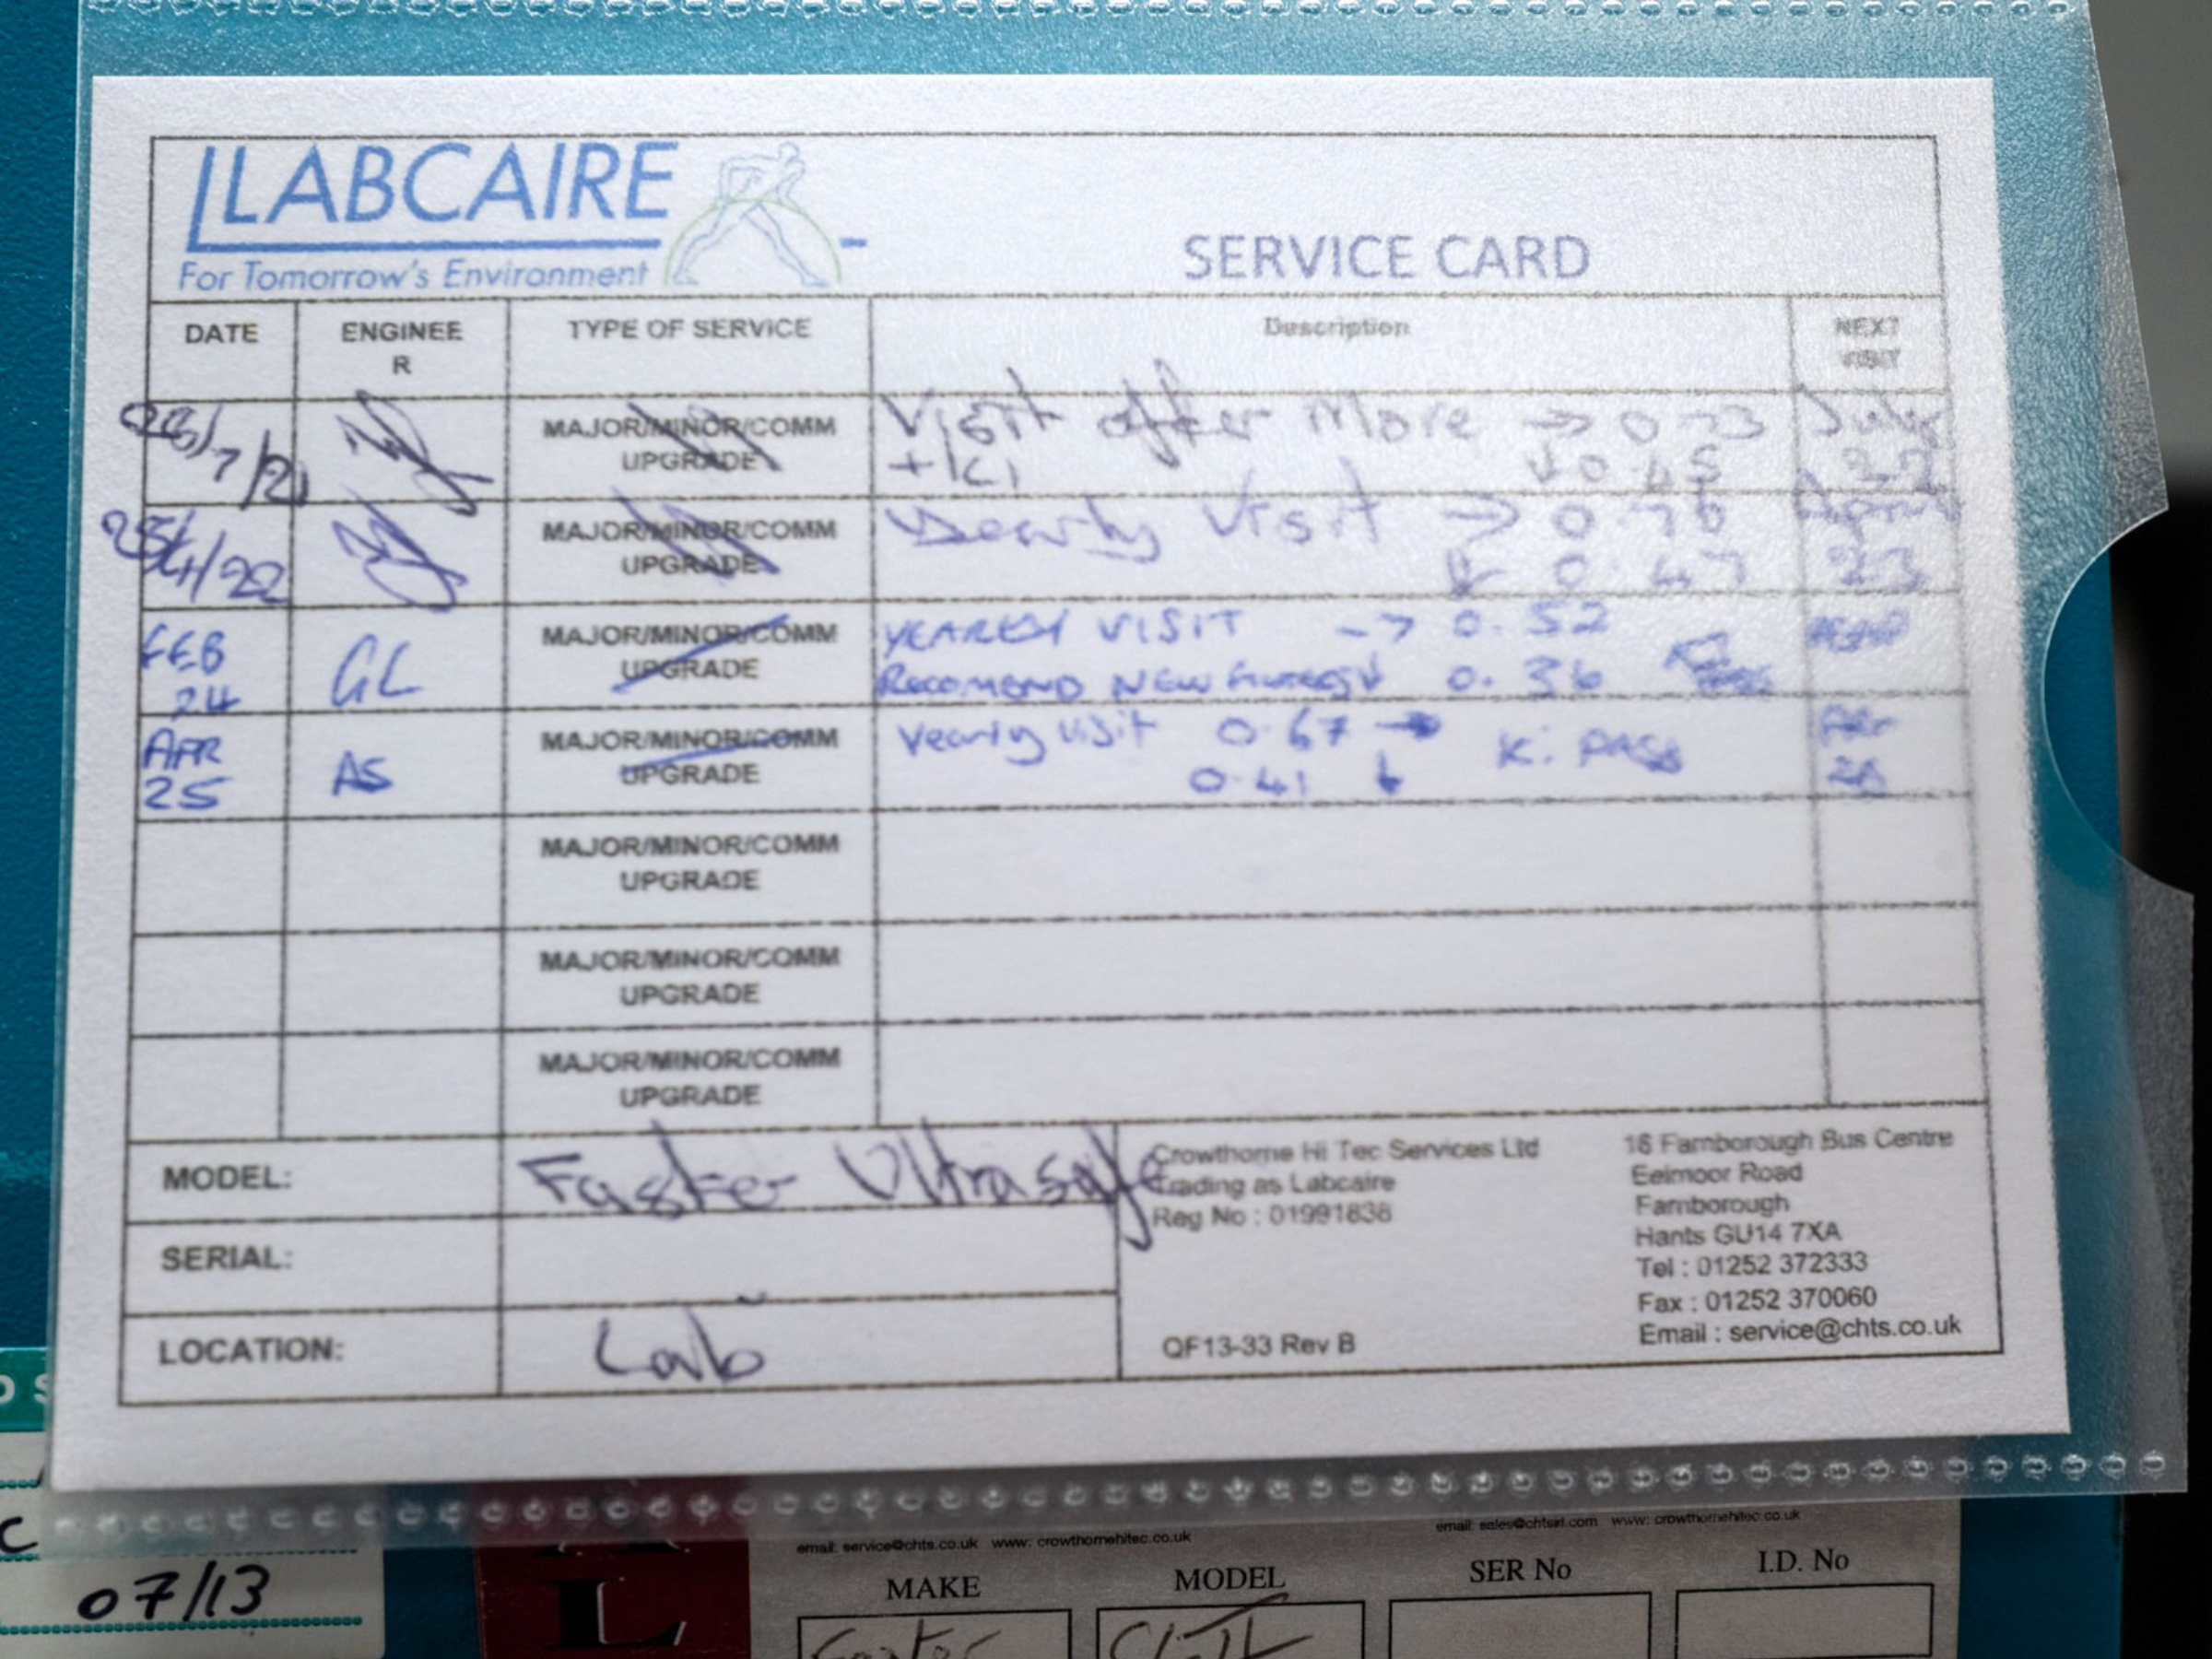 LABCAIRE
For Tomorrow's Environment
SERVICE CARD
DATE
ENGINEE
R
TYPE OF SERVICE
Description
NEXT
VISIT
28/
7/21
MAJOR/MINOR/COMM
UPGRADE
Visit after More → 0.73
+ KI ↓ 0.45
July
22
25/
4/22
MAJOR/MINOR/COMM
UPGRADE
Yearly Visit → 0.76
↓ 0.47
April
23
FEB
24
GL
MAJOR/MINOR/COMM
UPGRADE
YEARLY VISIT -> 0.52
RECOMEND NEW ↓ 0.36
APR
25
AS
MAJOR/MINOR/COMM
UPGRADE
Yearly visit 0.67 →
0.41 ↓
K. PASS
APR
26
MAJOR/MINOR/COMM
UPGRADE
MAJOR/MINOR/COMM
UPGRADE
MAJOR/MINOR/COMM
UPGRADE
MODEL:
Faster Ultrasafe
SERIAL:
LOCATION:
Lab
Crowthorne Hi Tec Services Ltd
Trading as Labcaire
Reg No : 01991838
QF13-33 Rev B
16 Farnborough Bus Centre
Eelmoor Road
Farnborough
Hants GU14 7XA
Tel : 01252 372333
Fax : 01252 370060
Email : service@chts.co.uk
07/13
email: service@chts.co.uk www: crowthornehitec.co.uk
email: sales@chtsirl.com www: crowthornehitec.co.uk
MAKE
MODEL
SER No
I.D. No
Faster